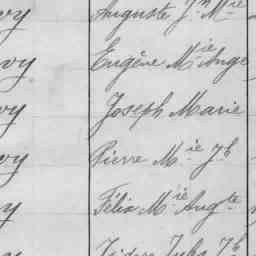 vy Auguste Jn Mie
vy Eugène Mie Ange
vy Joseph Marie
vy Pierre Mie Jh
y Félix Mie Augte
Isidore Jules Jh